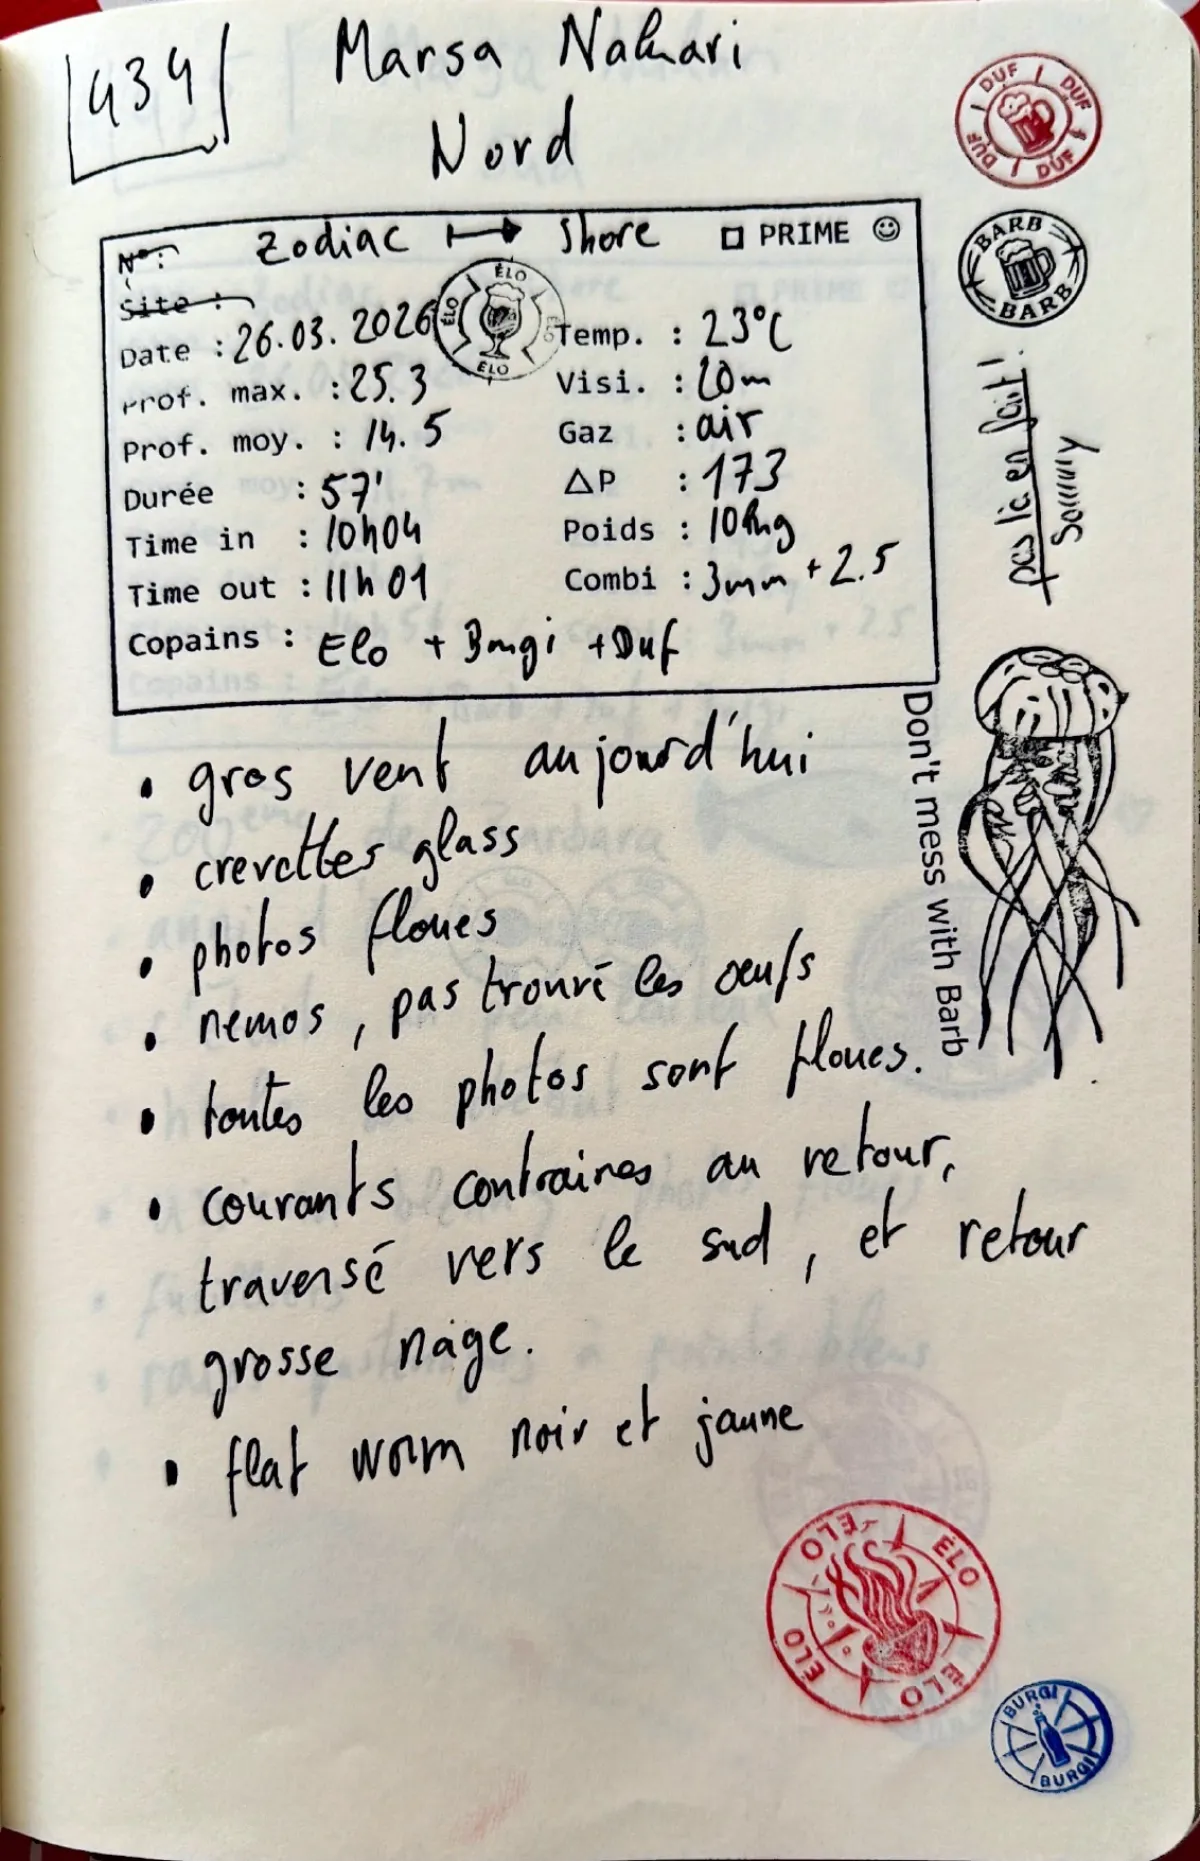 434
Marsa Nakari
Nord
N°:
Zodiac ↦ Shore
□ PRIME ☺
Site :
Date : 26.03.2026
Prof. max. : 25.3
Prof. moy. : 14.5
Durée : 57'
Time in : 10h04
Time out : 11h01
Temp. : 23°C
Visi. : 20m
Gaz : air
ΔP : 173
Poids : 10kg
Combi : 3mm + 2.5
Copains : Elo + Burgi + Duf
• gros vent aujourd'hui
• crevettes glass
• photos floues
• nemos, pas trouvé les oeufs
• toutes les photos sont floues.
• courants contraires au retour,
traversé vers le sud, et retour
grosse nage.
• flat worm noir et jaune
DUF DUF DUF DUF
BARB BARB
pas là en fait!
Sorrry
Don't mess with Barb
ÉLO ÉLO ÉLO ÉLO
ÉLO ÉLO ÉLO ÉLO
BURGI BURGI